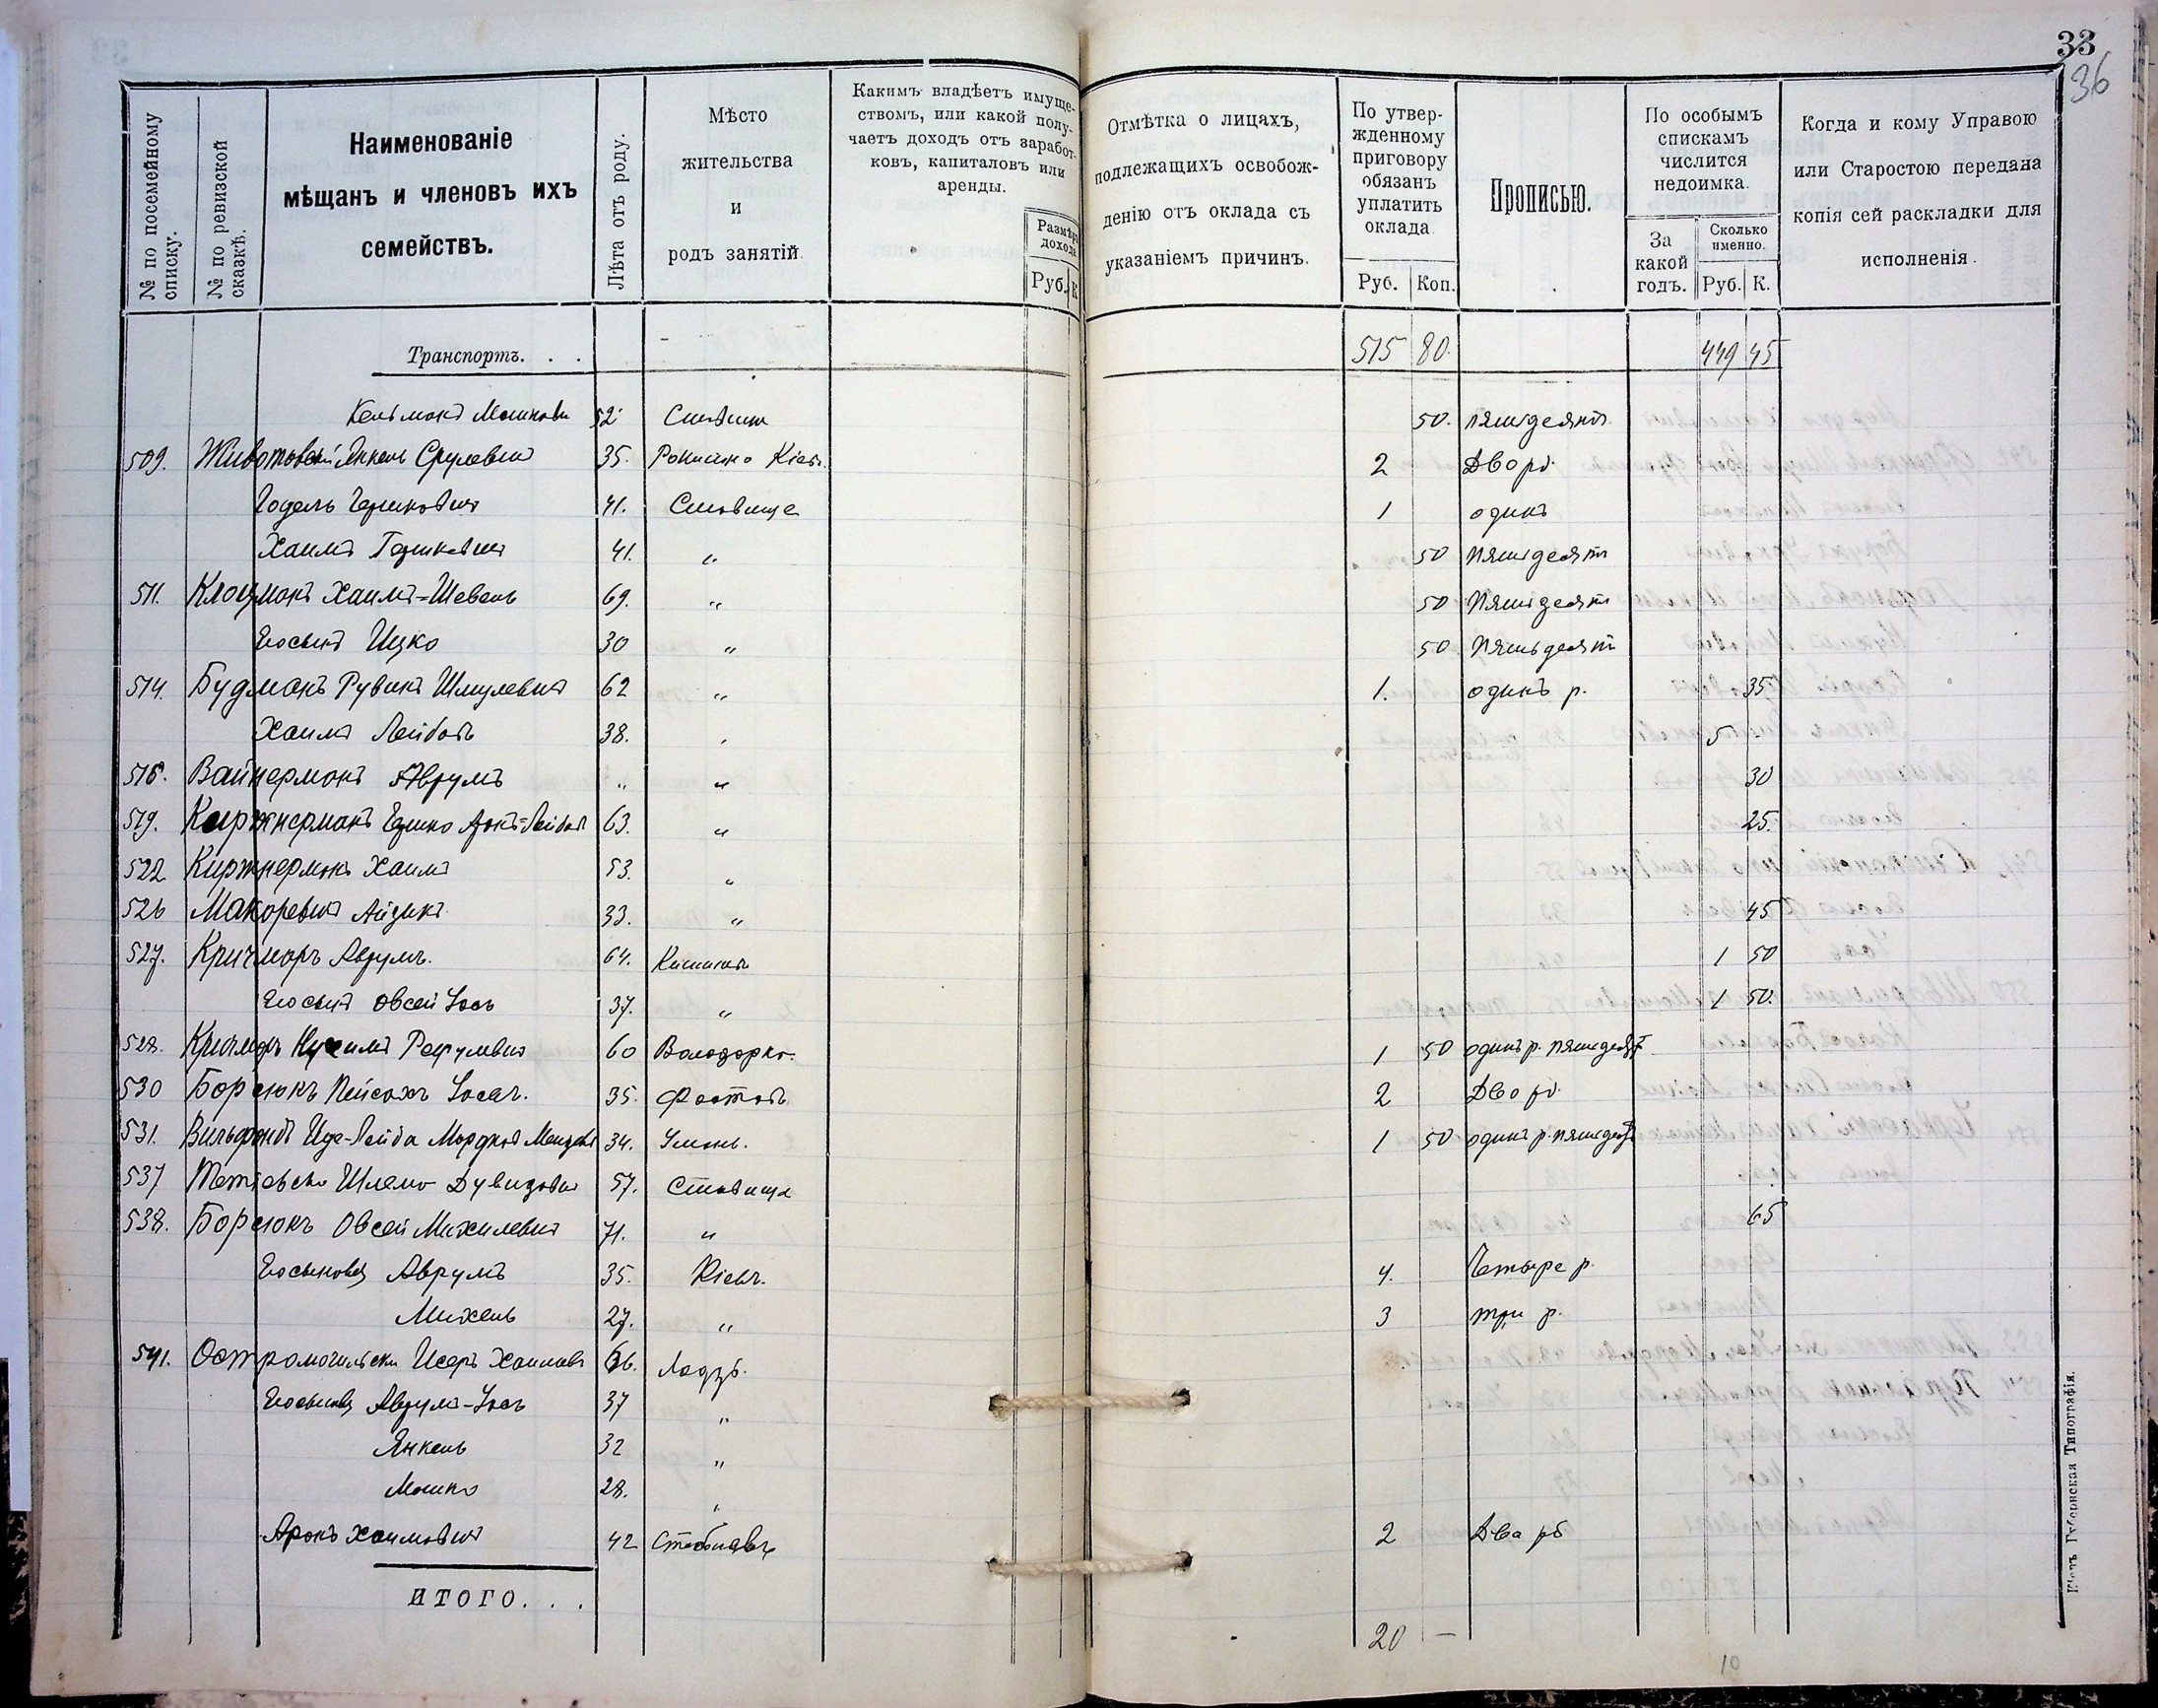 33
36
№ по посемейному списку.
№ по ревизской сказкѣ.
Наименованіе
мѣщанъ и членовъ ихъ
семействъ.
Лѣта отъ роду.
Мѣсто
жительства
и
родъ занятій.
Какимъ владѣетъ имуще-
ствомъ, или какой полу-
чаетъ доходъ отъ заработ-
ковъ, капиталовъ или
аренды.
Размѣръ
дохода
Руб. К
Отмѣтка о лицахъ,
подлежащихъ освобож-
денію отъ оклада съ
указаніемъ причинъ.
По утвер-
жденному
приговору
обязанъ
уплатить
оклада
Руб. Коп.
Прописью.
По особымъ
спискамъ
числится
недоимка.
За
какой
годъ.
Сколько
именно.
Руб. К.
Когда и кому Управою
или Старостою передана
копія сей раскладки для
исполненія.
Транспортъ. . . 515 80. 449 45
52 50. пятьдесят
509. Животовскій Янкель Срулевич 35. 2 Два р.
Годель Гершкович 41. Ставище 1 один
Хаим Гершкович 41. " 50 пятьдесят
511. Клоцман Хаим-Шевель 69. " 50 пятьдесят
Его сын Ицко 30 " 50 пятьдесят
514. Будман Рувин Шмулевич 62 " 1. один р. 35
Хаим Лейбов 38. 5
516. Вайнерман Аврум " " 30
519. Киржнерман Арон-Лейбов 63. " 25.
522 Киржнерман Хаим 53. "
526 Макоревич Айзик 33. " 45
527. Кричмар Аврум. 64. 1 50
Его сын Овсей Іось 37. " 1 50.
528. Кричмар Нухим 60 Володарка. 1 50 один р. пятьдесят
530 Борсюкъ Пейсах Іосев. 35. Фастов 2 Два р.
531. Лейба 34. Умань. 1 50 один р. пятьдесят
537 Шлемо Дувидович 57. Ставище
538. Борсюкъ Овсей Михилевич 71. " 65
Его сыновья Аврум 35. Кіевъ. 4. Четыре р.
Михель 27. " 3 три р.
541. Остромогильски Исер Хаимов 66. Лодзь.
Его сыновья Аврум-Іось 37 "
Янкель 32 "
Мошко 28. "
Арон Хаимович 42 2 Два рб
ИТОГО. . . 20 —
10
Кіевъ Губернская Типографія.